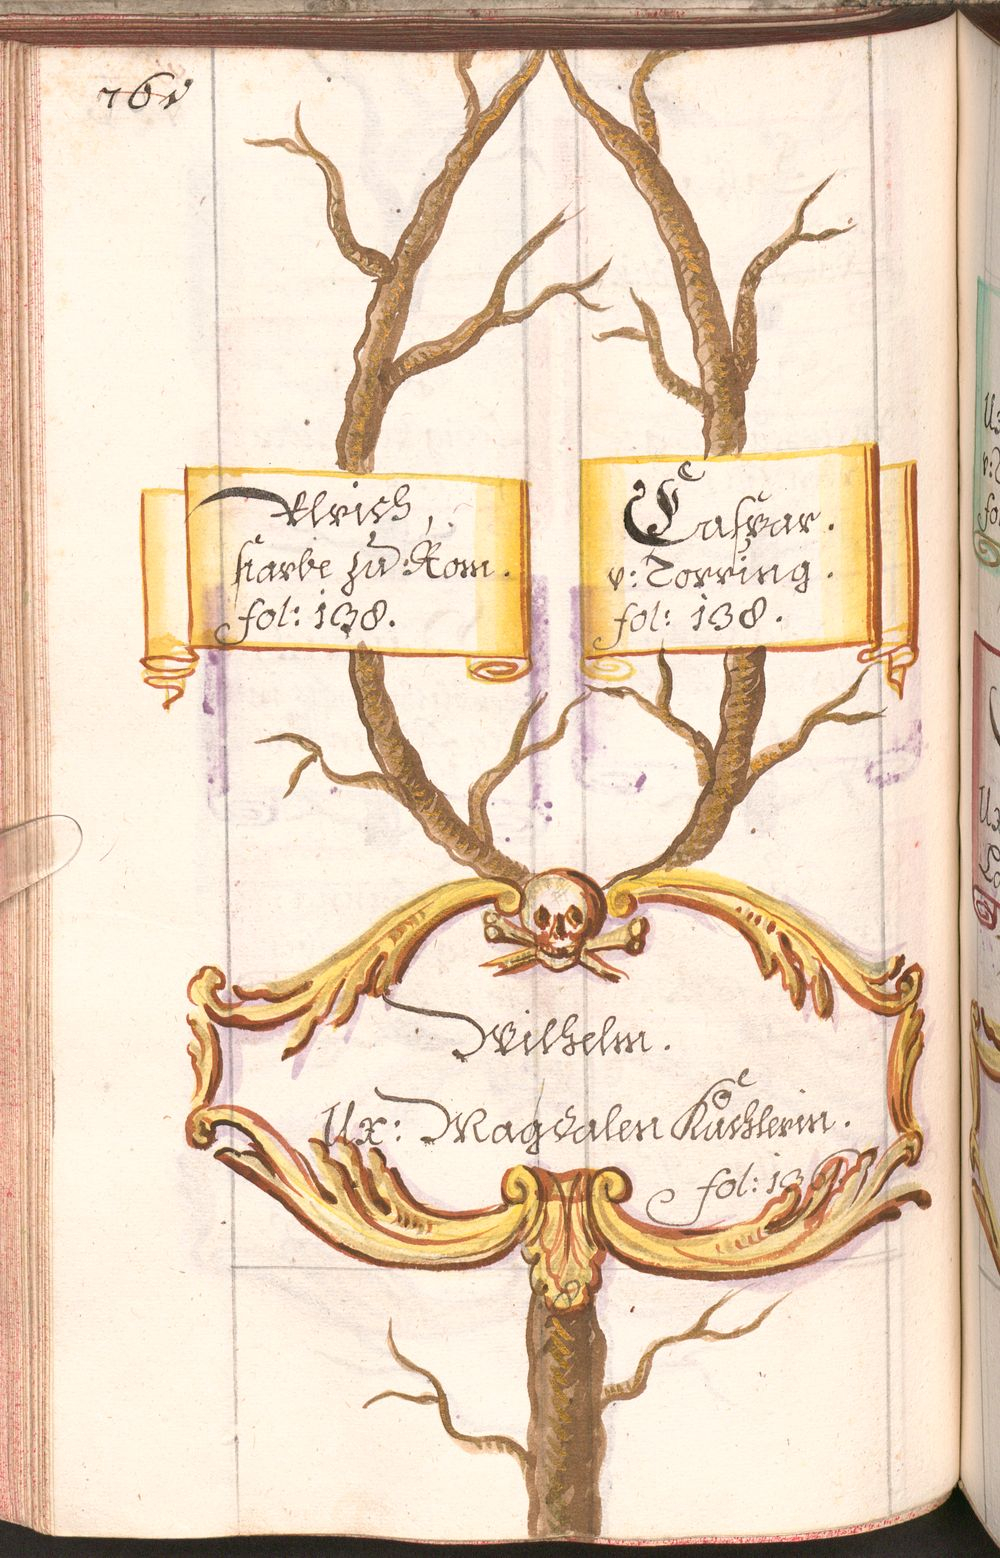 761
Ulrich,
starbe zu Rom.
fol: 138.
Caspar.
v: Torring.
fol: 138.
Wilhelm.
Ux: Magdalen Kuchlerin.
fol: 136